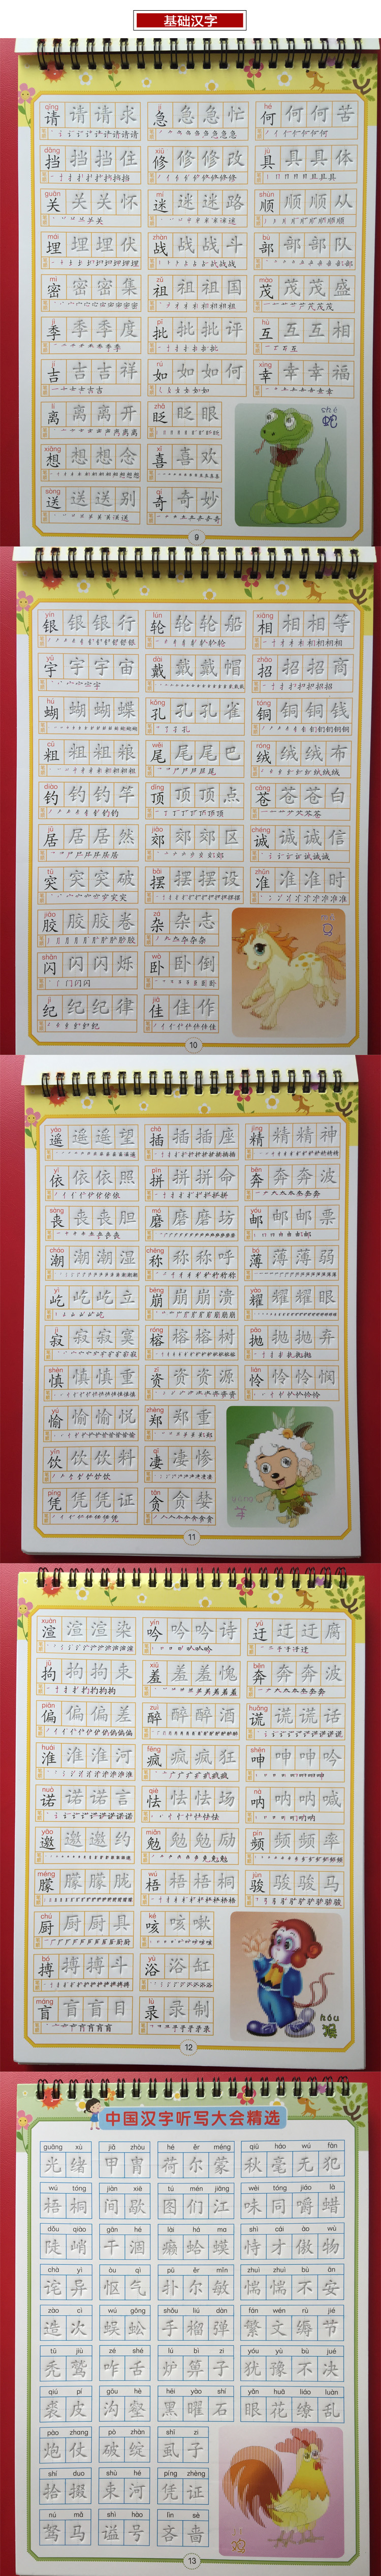 基础汉字
qǐng jí hé
请 请 请 求 急 急 急 忙 何 何 何 苦
dǎng xiū jù
挡 挡 挡 住 修 修 修 改 具 具 具 体
guān mí shùn
关 关 关 怀 迷 迷 迷 路 顺 顺 顺 从
mái zhàn bù
埋 埋 埋 伏 战 战 战 斗 部 部 部 队
mì zǔ mào
密 密 密 集 祖 祖 祖 国 茂 茂 茂 盛
jì pī hù
季 季 季 度 批 批 批 评 互 互 互 相
jí rú xìng
吉 吉 吉 祥 如 如 如 何 幸 幸 幸 福
lí zhǎ
离 离 离 开 眨 眨 眼
shé
蛇
xiǎng xǐ
想 想 想 念 喜 喜 欢
sòng qí
送 送 送 别 奇 奇 妙
9
yín lún xiāng
银 银 银 行 轮 轮 轮 船 相 相 相 等
yǔ dài zhāo
宇 宇 宇 宙 戴 戴 戴 帽 招 招 招 商
hú kǒng tóng
蝴 蝴 蝴 蝶 孔 孔 孔 雀 铜 铜 铜 钱
cū wěi róng
粗 粗 粗 粮 尾 尾 尾 巴 绒 绒 绒 布
diào dǐng cāng
钓 钓 钓 竿 顶 顶 顶 点 苍 苍 苍 白
jū jiāo chéng
居 居 居 然 郊 郊 郊 区 诚 诚 诚 信
tū bǎi zhǔn
突 突 突 破 摆 摆 摆 设 准 准 准 时
jiāo zá
胶 胶 胶 卷 杂 杂 志
shǎn wò
闪 闪 闪 烁 卧 卧 倒
jì jiā
纪 纪 纪 律 佳 佳 作
10
yáo chā jīng
遥 遥 遥 望 插 插 插 座 精 精 精 神
yī pīn bēn
依 依 依 照 拼 拼 拼 命 奔 奔 奔 波
sàng mò yóu
丧 丧 丧 胆 磨 磨 磨 坊 邮 邮 邮 票
cháo chēng bó
潮 潮 潮 湿 称 称 称 呼 薄 薄 薄 弱
yì bēng yào
屹 屹 屹 立 崩 崩 崩 溃 耀 耀 耀 眼
jì róng pāo
寂 寂 寂 寞 榕 榕 榕 树 抛 抛 抛 弃
shèn zī lián
慎 慎 慎 重 资 资 资 源 怜 怜 怜 悯
yú zhèng
愉 愉 愉 悦 郑 郑 重
yǐn qī
饮 饮 饮 料 凄 凄 惨
羊
píng tān
凭 凭 凭 证 贪 贪 婪
11
xuàn yín yū
渲 渲 渲 染 吟 吟 吟 诗 迂 迂 迂 腐
jū xiū bēn
拘 拘 拘 束 羞 羞 羞 愧 奔 奔 奔 波
piān zuì huǎng
偏 偏 偏 差 醉 醉 醉 酒 谎 谎 谎 话
huái fēng shēn
淮 淮 淮 河 疯 疯 疯 狂 呻 呻 呻 吟
nuò qiè nà
诺 诺 诺 言 怯 怯 怯 场 呐 呐 呐 喊
yāo miǎn pín
邀 邀 邀 约 勉 勉 勉 励 频 频 频 率
méng wú jùn
朦 朦 朦 胧 梧 梧 梧 桐 骏 骏 骏 马
chú ké
厨 厨 厨 具 咳 咳 嗽
bó yù
搏 搏 搏 斗 浴 浴 缸
hóu
máng lù
盲 盲 盲 目 录 录 制
12
中国汉字听写大会精选
guāng xù jiǎ zhòu hé ěr méng qiū háo wú fàn
光 绪 甲 胄 荷 尔 蒙 秋 毫 无 犯
wú tóng jiàn xiē tú mén jiāng wèi tóng jiáo là
梧 桐 间 歇 图 们 江 味 同 嚼 蜡
dǒu qiào gān hé lài há ma shì cái ào wù
陡 峭 干 涸 癞 蛤 蟆 恃 才 傲 物
chà yì òu qì pū ěr mǐn zhuì zhuì bù ān
诧 异 怄 气 扑 尔 敏 惴 惴 不 安
zào cì wú gōng shǒu liú dàn fán wén rù jié
造 次 蜈 蚣 手 榴 弹 繁 文 缛 节
tū jiù zé shé lú bì zi yóu yù bù jué
秃 鹫 咋 舌 炉 箅 子 犹 豫 不 决
qiú pí gōu hè hēi yào shí yǎn huā liáo luàn
裘 皮 沟 壑 黑 曜 石 眼 花 缭 乱
páo zhang pò zhàn shī zi
炮 仗 破 绽 虱 子
shí duo shù hé píng zhèng
拾 掇 束 河 凭 证
鸡
nú mǎ shì hào lìn sè
驽 马 谥 号 吝 啬
13